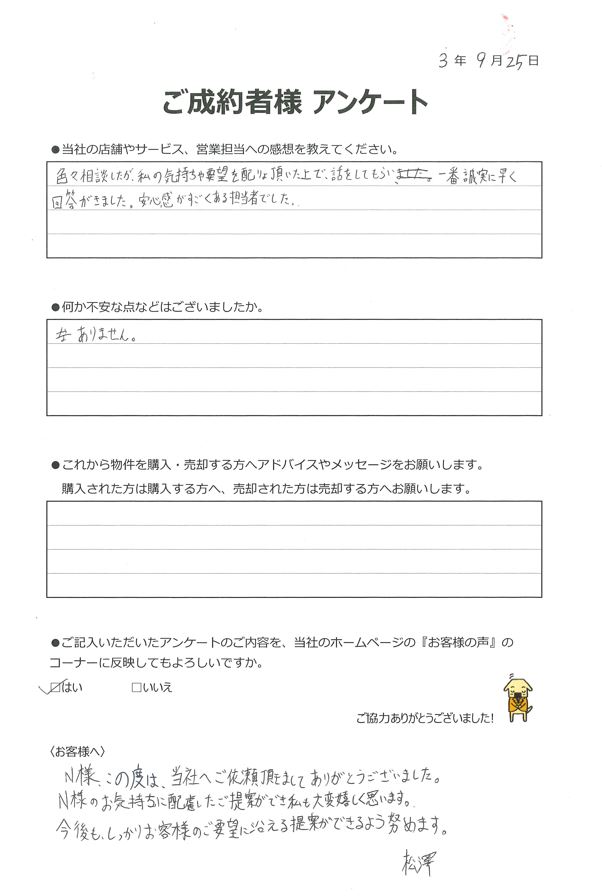 3年 9月25日
ご成約者様 アンケート
●当社の店舗やサービス、営業担当への感想を教えてください。
色々相談したが、私の気持ちや要望を配りょ頂いた上で、話をしてもらいました。一番誠実に早く
回答がきました。安心感がすごくある担当者でした。
●何か不安な点などはございましたか。
ありません。
●これから物件を購入・売却する方へアドバイスやメッセージをお願いします。
購入された方は購入する方へ、売却された方は売却する方へお願いします。
●ご記入いただいたアンケートのご内容を、当社のホームページの『お客様の声』の
コーナーに反映してもよろしいですか。
☑はい □いいえ
ご協力ありがとうございました！
〈お客様へ〉
N様、この度は、当社へご依頼頂きましてありがとうございました。
N様のお気持ちに配慮したご提案ができ私も大変嬉しく思います。
今後も、しっかりお客様のご要望に沿える提案ができるよう努めます。
松澤